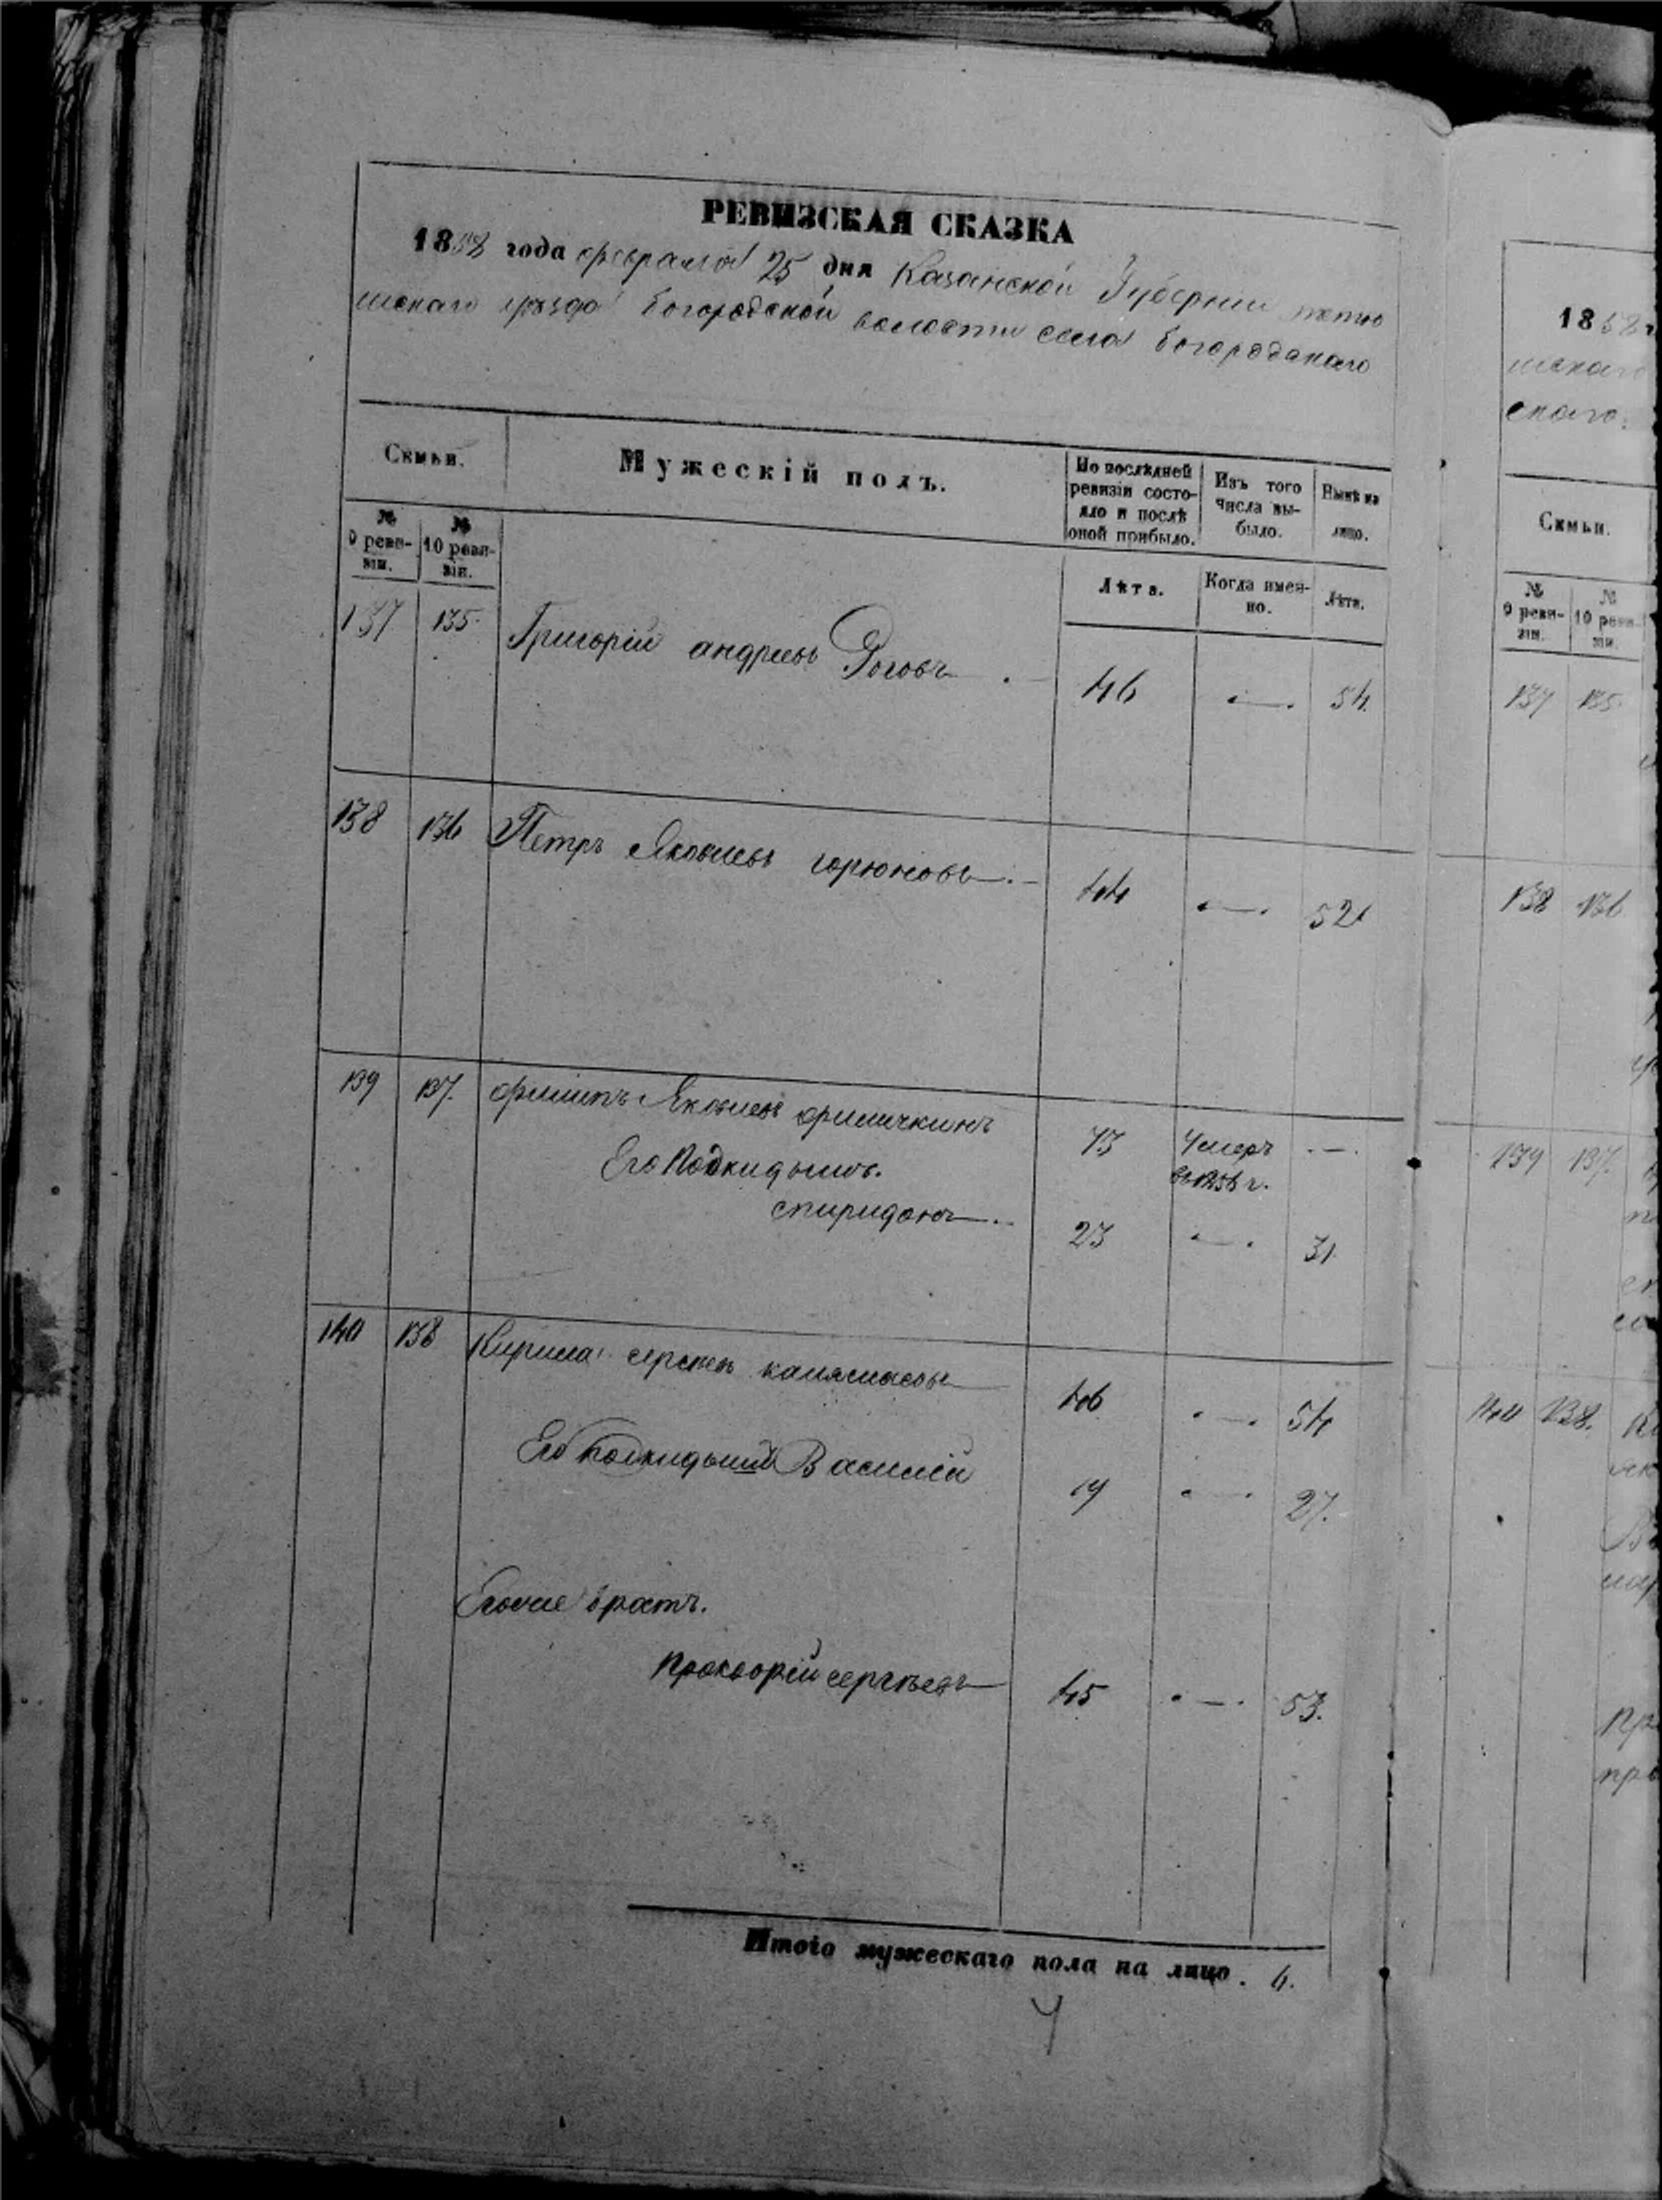 РЕВИЗСКАЯ СКАЗКА
1858 года февраля 25 дня Казанской Губернии тетю
шскаго уѣзда Богородской волости села Богородскаго
Семьи.
Мужескій полъ.
По послѣдней ревизіи состояло и послѣ оной прибыло.
Изъ того числа выбыло.
Нынѣ на лицо.
№ 9 ревизіи.
№ 10 ревизіи.
Лѣта.
Когда именно.
Лѣта.
137 135 Григорій андреевъ Роговъ 46 54.
138 136 Петръ Яковлевъ горюновъ 44 52
139 137. Филипъ Яковлевъ 73 Умеръ
Его Подкидышъ. въ 1856 г.
спиридонъ 23 31
140 138 Кирила 46 54
Его подкидышъ Василій 19 27.
братъ.
сергѣевъ 45 53.
Итого мужескаго пола на лицо. 6.
18 58 г
шскаго
скаго.
Семьи.
№ 9 ревизіи.
№ 10 ревизіи.
137 135
138 136
139 137.
140 138.